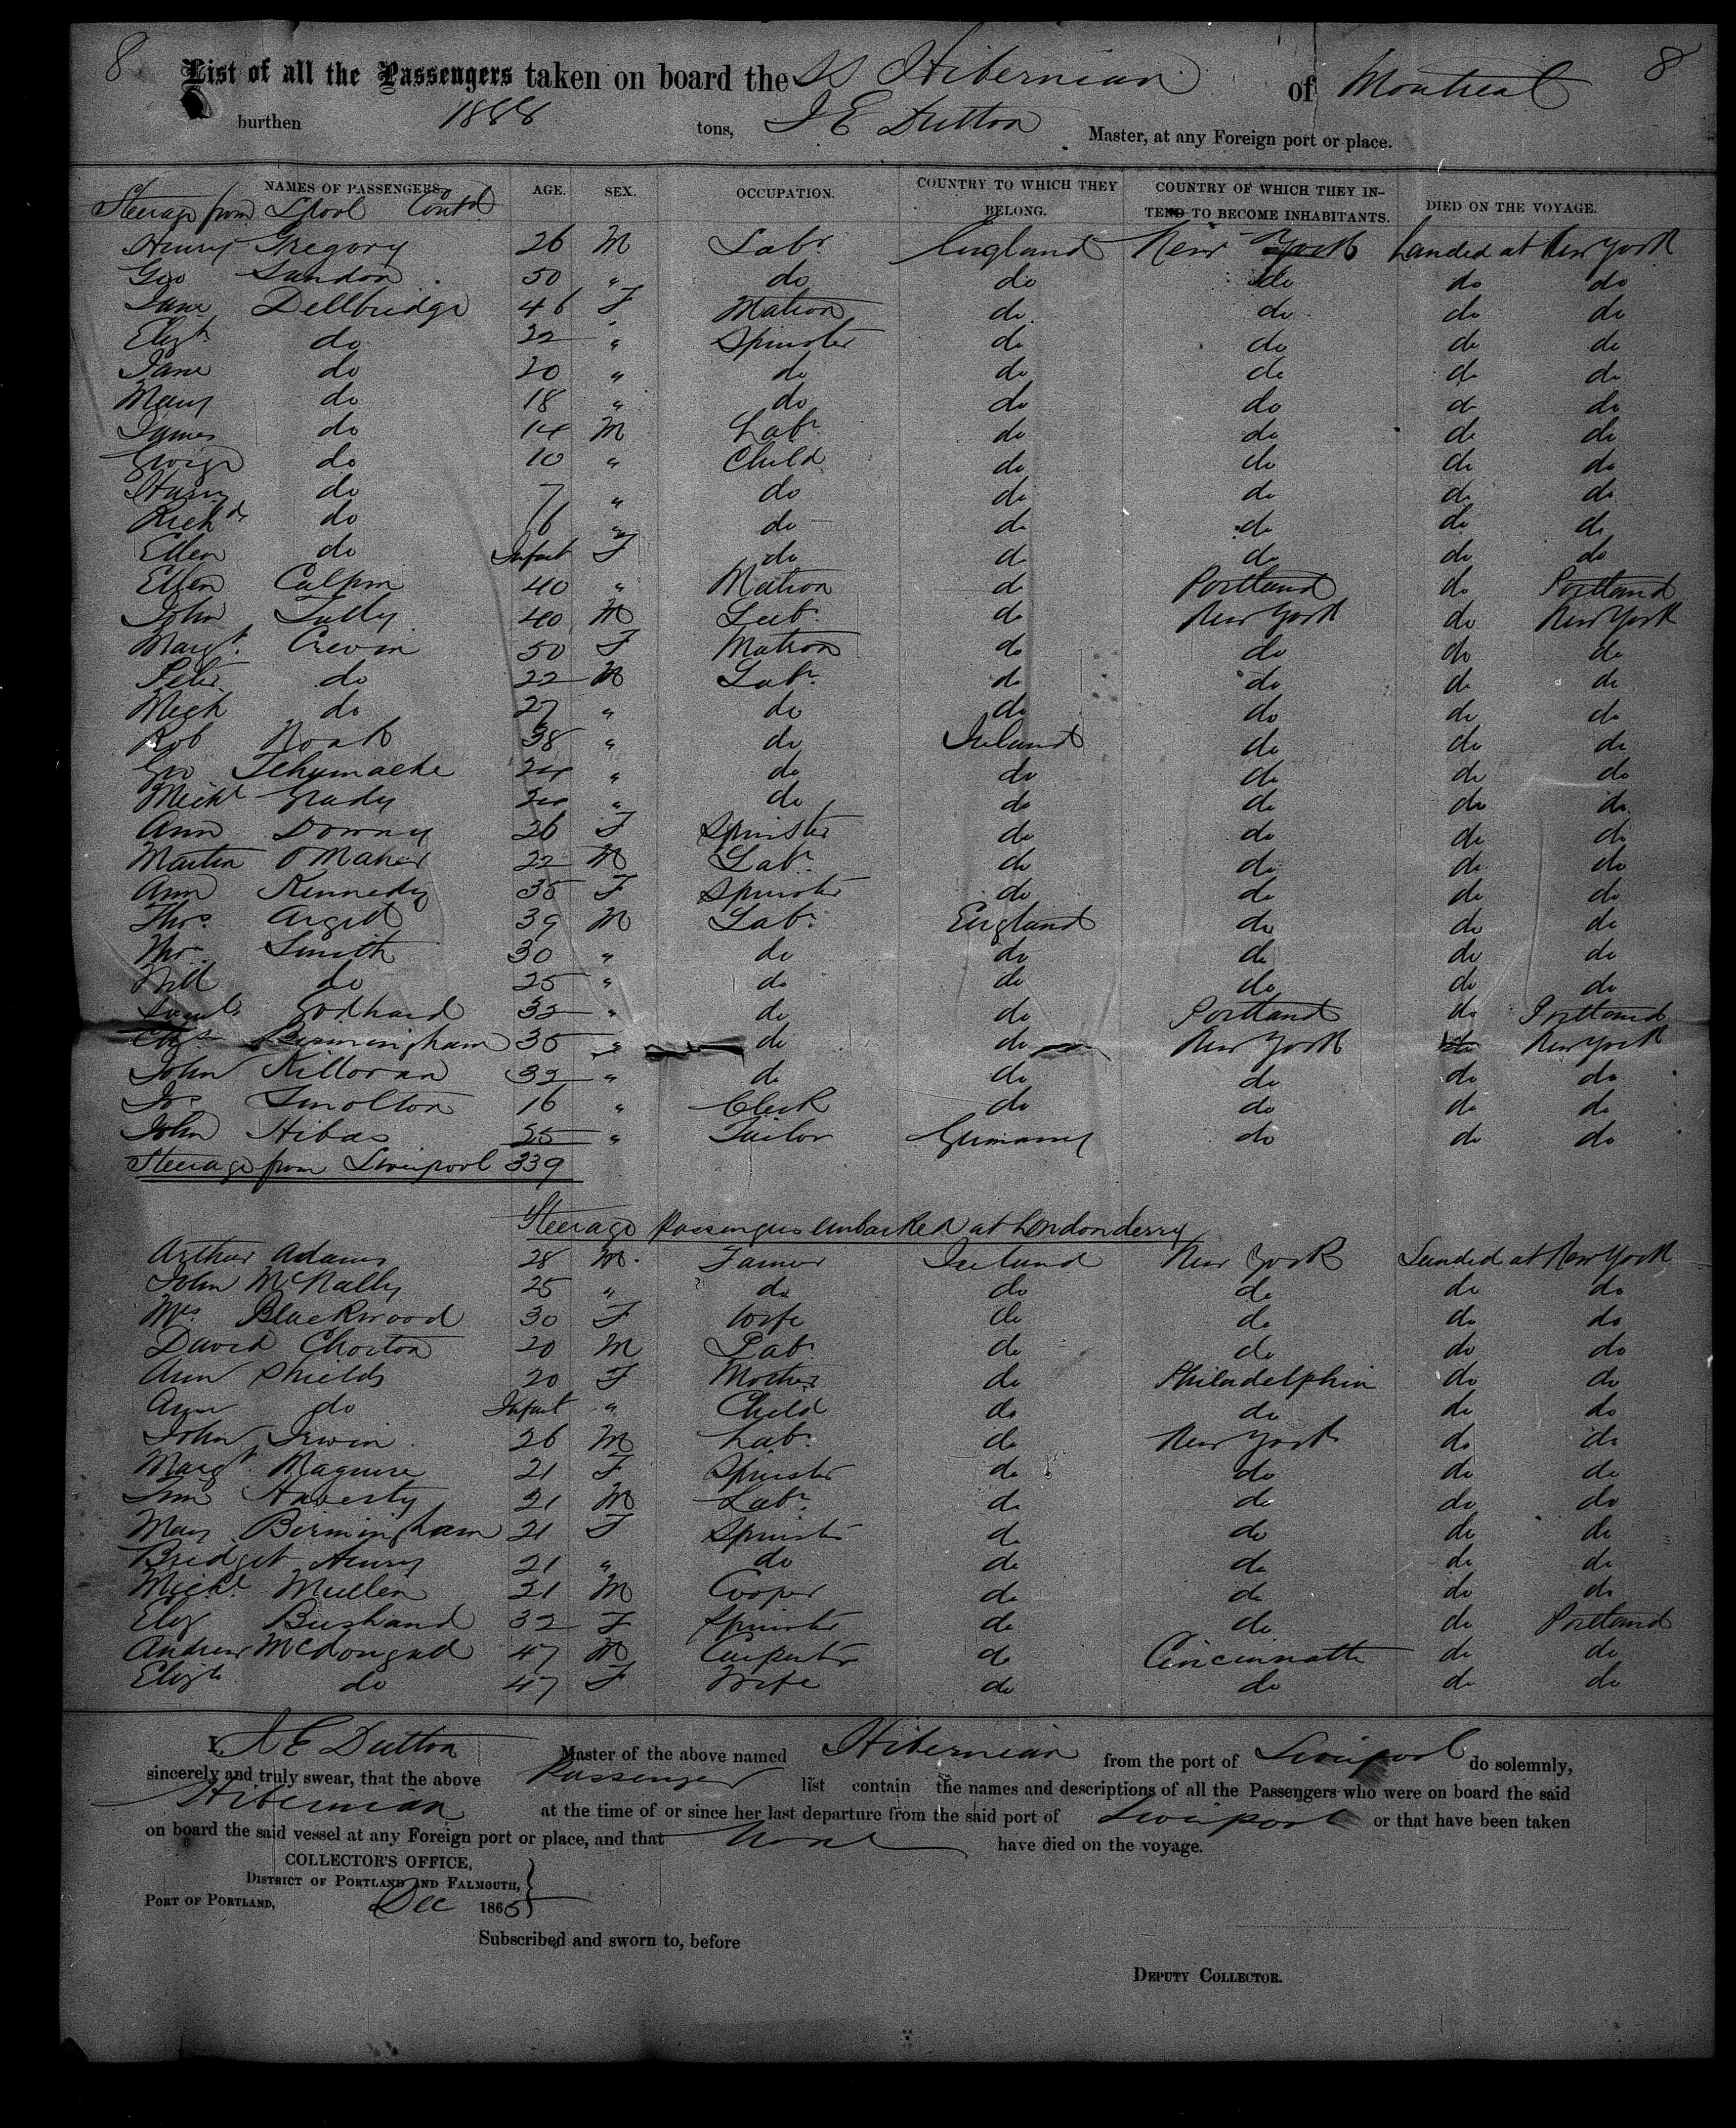 8 List of all the Passengers taken on board the SS Hibernian of Montreal 8
burthen 1888 tons, J E Dutton Master, at any Foreign port or place.
NAMES OF PASSENGERS. AGE. SEX. OCCUPATION. COUNTRY TO WHICH THEY BELONG. COUNTRY OF WHICH THEY INTEND TO BECOME INHABITANTS. DIED ON THE VOYAGE.
Steerage from Lpool Contd
Henry Gregory 26 M Labr England New York Landed at New York
Geo Landon 50 " do do do do do
Jane Dellbridge 46 F Matron do do do do
Elizth do 22 " Spinster do do do do
Jane do 20 " do do do do do
Mary do 18 " do do do do do
James do 14 M Labr do do do do
George do 10 " Child do do do do
Harry do 7 " do do do do do
Richd do 6 " do do do do do
Ellen do Infant F do do do do do
Ellen Calpin 40 " Matron do Portland do Portland
John Tully 40 M Lab do New York do New York
Margt. Crevin 50 F Matron do do do do
Peter do 22 M Labr do do do do
Mich do 27 " do do do do do
Rob Noak 38 " do Ireland do do do
Geo Schumache 24 " do do do do do
Michl Grady " do do do do do
Ann Downy 26 F Spinster do do do do
Martin O Maher 22 M Labr do do do do
Ann Kennedy 35 F Spinster do do do do
Thos. 39 M Labr England do do do
Smith 30 " do do do do do
Will do 25 " do do do do do
Saml Godhard 32 " do do Portland do Portland
Birmingham 35 " do do New York do New York
John Killoran 32 " do do do do do
Jos Smolton 16 " Clerk do do do do
John Hibas 25 " Tailor Germany do do do
Steerage from Liverpool 339
Steerage Passengers Embarked at Londonderry
Arthur Adams 28 M. Farmer Ireland New York Landed at New York
John McNally 25 " do do do do do
Mrs. Blackwood 30 F Wife do do do do
David Chorton 20 M Labr do do do do
Ann Shields 20 F Mother do Philadelphia do do
Ann do Infant " Child do do do do
John Irwin 26 M Labr do New York do do
Margt. Maguire 21 F Spinster do do do do
Haverty 21 M Labr do do do do
Mary Birmingham 21 F Spinster do do do do
Bridget Henry 21 " do do do do do
Michl. Mullen 21 M Cooper do do do do
Eliz Bushand 32 F Spinster do do do Portland
Andrew McDougad 47 M Carpenter do Cincinnatti do do
Elizth do 47 F Wife do do do do
I, J E Dutton Master of the above named Hibernian from the port of Liverpool do solemnly,
sincerely and truly swear, that the above Passenger list contain the names and descriptions of all the Passengers who were on board the said
Hibernian at the time of or since her last departure from the said port of Liverpool or that have been taken
on board the said vessel at any Foreign port or place, and that None have died on the voyage.
COLLECTOR'S OFFICE,
DISTRICT OF PORTLAND AND FALMOUTH, }
PORT OF PORTLAND, Dec 1865
Subscribed and sworn to, before
DEPUTY COLLECTOR.